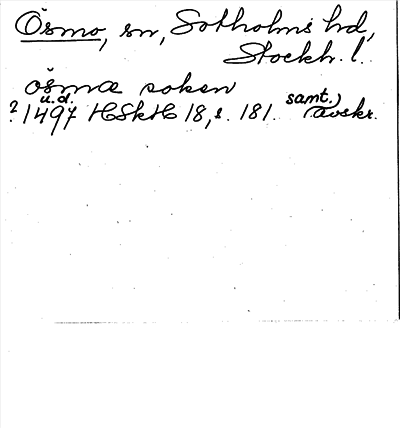 Ösmo, sn, Sotholms hd,
Stockh. l.
ösmæ soken
u.d. samt.)
? 1497 HSkH 18, s. 181. avskr.